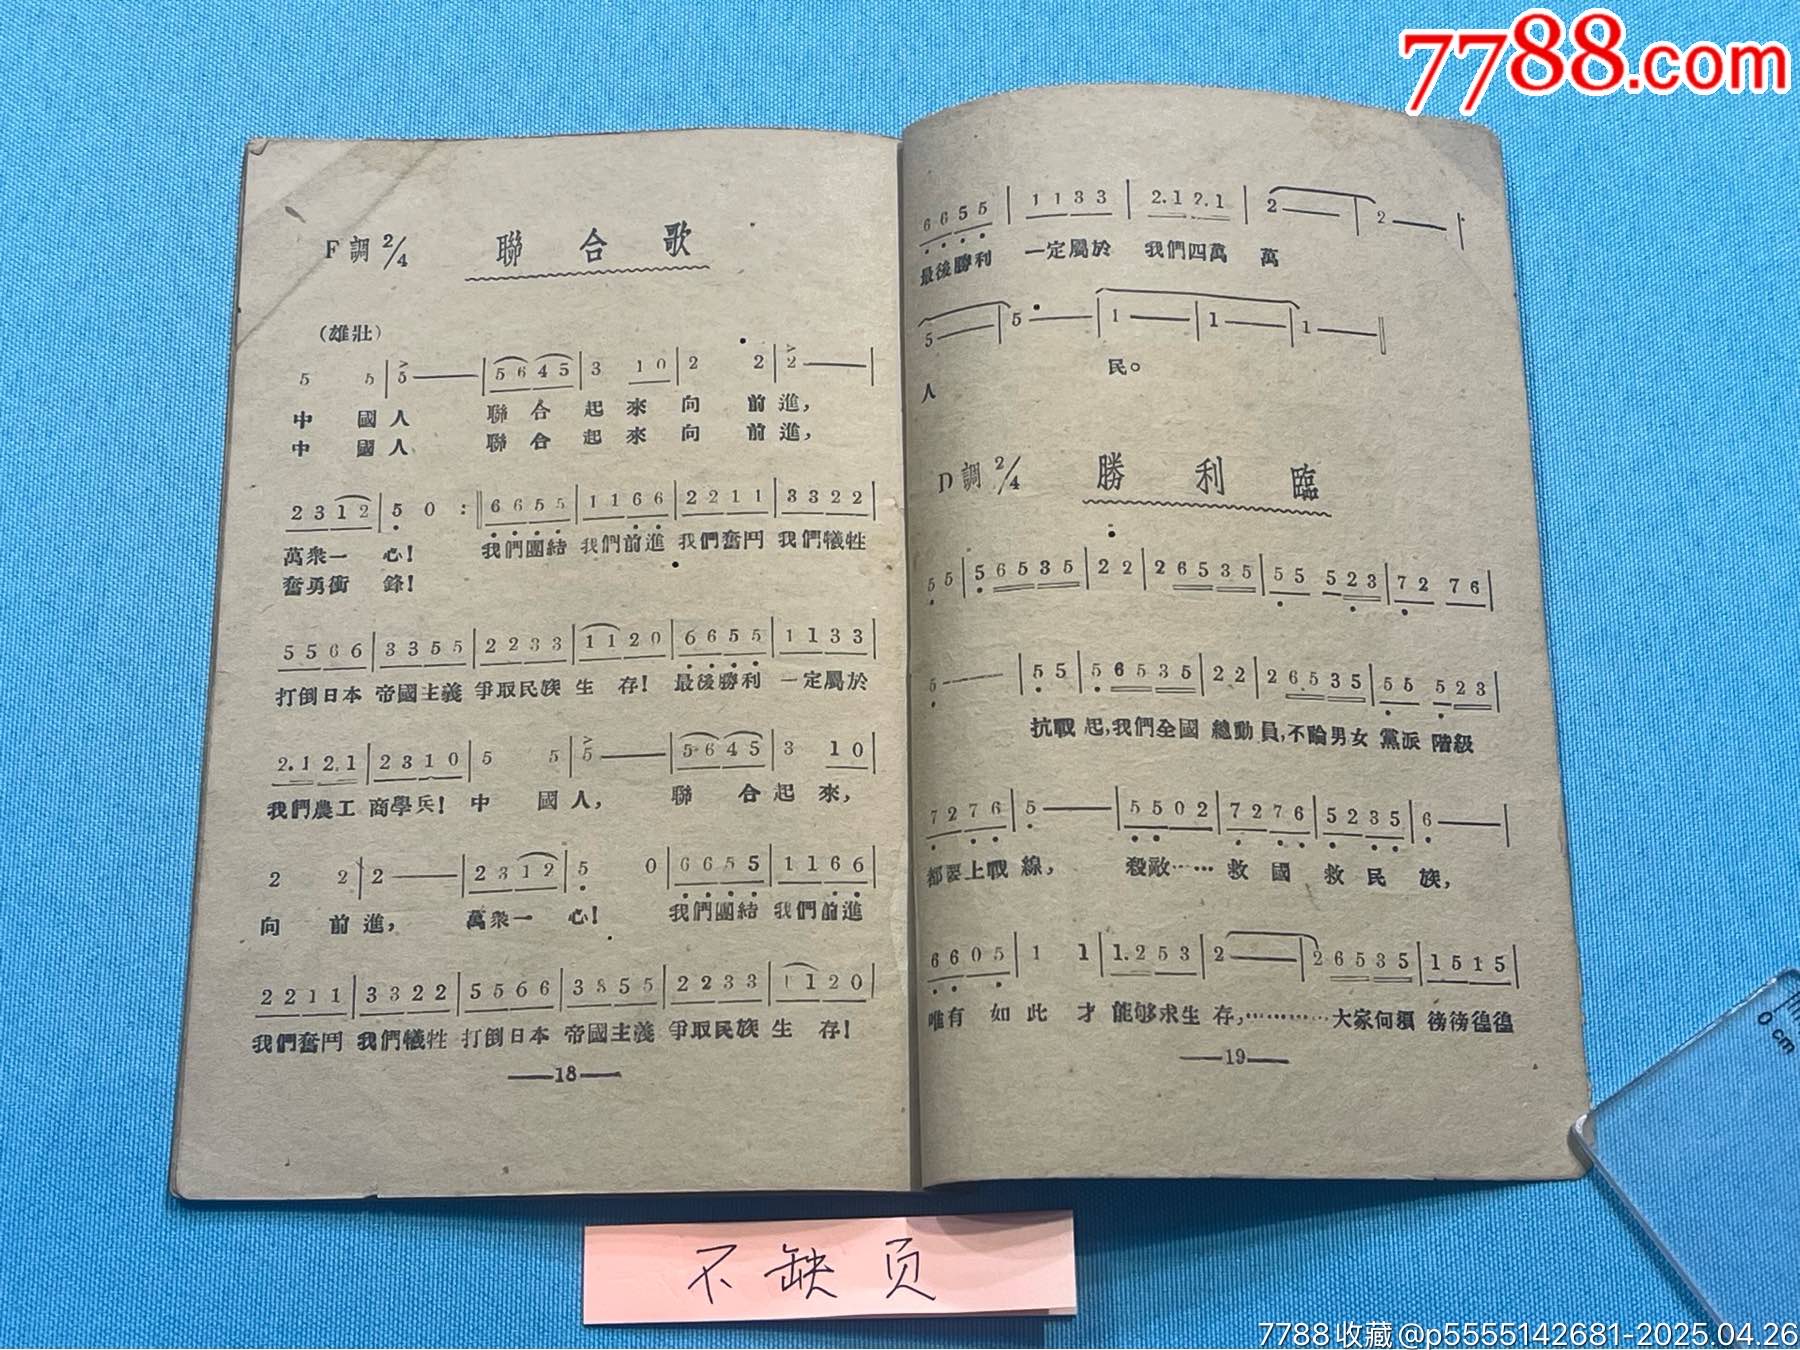 7788.com
F調 2/4 聯合歌
(雄壯)
5 5 | 5 — | 5 6 4 5 | 3 1 0 | 2 2 | 2 — |
中 國 人 聯 合 起 來 向 前 進,
中 國 人 聯 合 起 來 向 前 進,
2 3 1 2 | 5 0 :‖ 6 6 5 5 | 1 1 6 6 | 2 2 1 1 | 3 3 2 2 |
萬衆一 心! 我們團結 我們前進 我們奮鬥 我們犧牲
奮勇衝 鋒!
5 5 6 6 | 3 3 5 5 | 2 2 3 3 | 1 1 2 0 | 6 6 5 5 | 1 1 3 3 |
打倒日本 帝國主義 爭取民族 生 存! 最後勝利 一定屬於
2. 1 2. 1 | 2 3 1 0 | 5 5 | 5 — | 5 6 4 5 | 3 1 0 |
我們農工 商學兵! 中 國 人, 聯 合 起 來,
2 2 | 2 — | 2 3 1 2 | 5 0 | 6 6 5 5 | 1 1 6 6 |
向 前 進, 萬衆一 心! 我們團結 我們前進
2 2 1 1 | 3 3 2 2 | 5 5 6 6 | 3 3 5 5 | 2 2 3 3 | 1 1 2 0 |
我們奮鬥 我們犧牲 打倒日本 帝國主義 爭取民族 生 存!
—18—
6 6 5 5 | 1 1 3 3 | 2. 1 2. 1 | 2 — | 2 — |
最後勝利 一定屬於 我們四萬 萬
5 — | 5 — | 1 — | 1 — | 1 — ‖
人 民。
D調 2/4 勝利臨
5 5 | 5 6 5 3 5 | 2 2 | 2 6 5 3 5 | 5 5 5 2 3 | 7 2 7 6 |
5 — | 5 5 | 5 6 5 3 5 | 2 2 | 2 6 5 3 5 | 5 5 5 2 3 |
抗戰 起,我們全國 總動員,不論男女 黨派 階級
7 2 7 6 | 5 — | 5 5 0 2 | 7 2 7 6 | 5 2 3 5 | 6 — |
都要上戰 線, 殺敵…… 救 國 救 民 族,
6 6 0 5 | 1 1 | 1. 2 5 3 | 2 — | 2 6 5 3 5 | 1 5 1 5 |
唯有 如此 才 能够求生 存,………… 大家何須 徬徬徨徨
—19—
0 cm
不缺页
7788收藏@p5555142681-2025.04.26